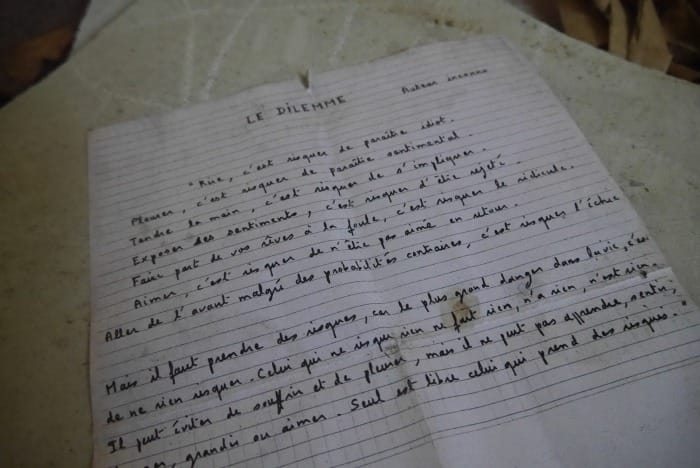 LE DILEMME
Auteur inconnu
"Rire, c'est risquer de paraître idiot.
Pleurer, c'est risquer de paraître sentimental.
Tendre la main, c'est risquer de s'impliquer.
Exposer des sentiments, c'est risquer d'être rejeté.
Faire part de vos rêves à la foule, c'est risquer le ridicule.
Aimer, c'est risquer de n'être pas aimé en retour.
Aller de l'avant malgré des probabilités contraires, c'est risquer l'échec
Mais il faut prendre des risques, car le plus grand danger dans la vie, c'est
de ne rien risquer. Celui qui ne risque rien ne fait rien, n'a rien, n'est rien.
Il peut éviter de souffrir et de pleurer, mais il ne peut pas apprendre, sentir,
grandir ou aimer. Seul est libre celui qui prend des risques."